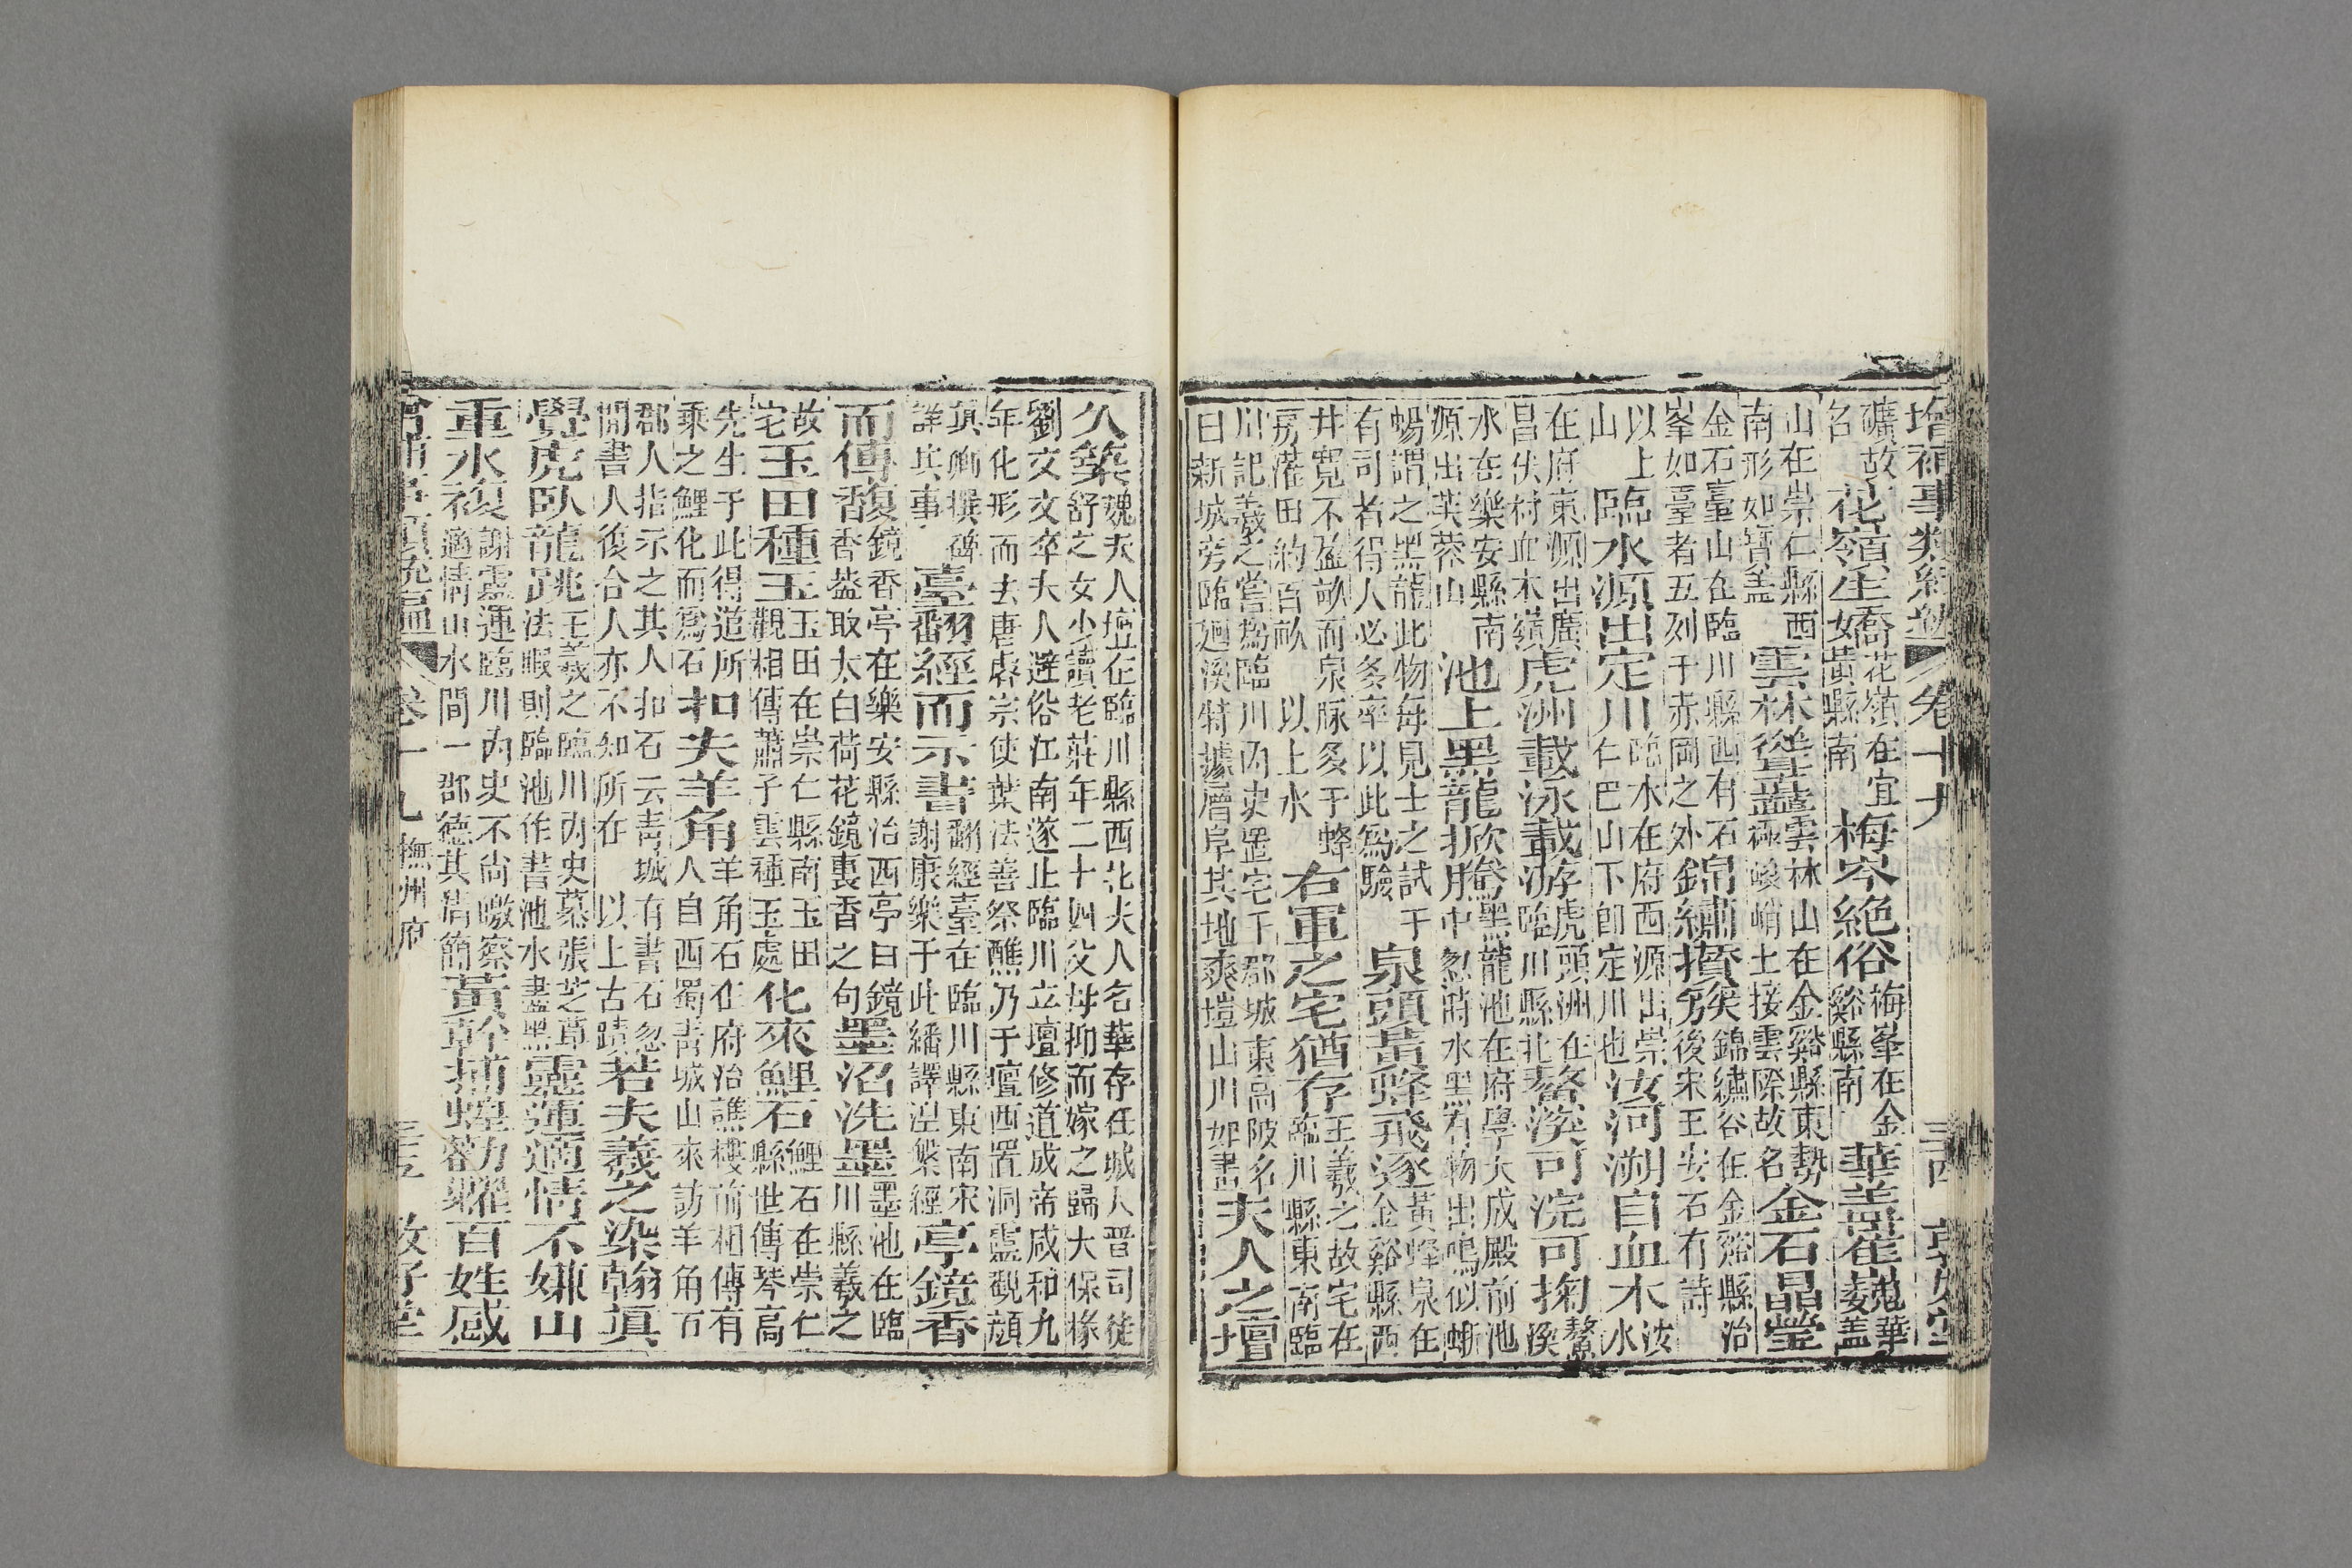 增補事類統編 卷十九 撫州府 三四 敦好堂
礦故名 花嶺生嬌 花嶺在宜黃縣南 梅岑絶俗 梅峯在金谿縣南 華蓋崔巍 華蓋
山在崇仁縣西南形如寶蓋 雲林聳蓋 雲林山在金谿縣東勢極峻峭上接雲際故名 金石晶瑩
金石臺山在臨川縣西有石峯如臺者五列于赤岡之外 錦繡攢另 矣錦繡谷在金谿縣治後宋王安石有詩
以上山 臨水源出定川 臨水在府西源出崇仁巴山下卽定川也 汝河溯自血木 汝水
在府東源出廣昌伏村血木嶺 虎洲載泳載游 虎頭洲在臨川縣北 鰲溪可浣可掬 鰲溪
水在樂安縣南源出芙蓉山 池上黑龍掀騰 黑龍池在府學大成殿前池中忽時水黑有物出鳴似蜥
蜴謂之黑龍此物每見士之試于有司者得人必多率以此爲驗 泉頭黃蜂飛逐 黃蜂泉在金谿縣西
井寬不盈畝而泉脉多于蜂房灌田約百畝 以上水 右軍之宅猶存 王羲之故宅在臨川縣東南臨
川記羲之嘗爲臨川內史置宅于郡城東高陂名曰新城旁臨廻溪特據層阜其地爽塏山川如畫 夫人之壇
久築 魏夫人壇在臨川縣西北夫人名華存任城人晋司徒舒之女少讀老莊年二十四父母抑而嫁之歸大保椽
劉文文卒夫人避俗江南遂止臨川立壇修道成帝咸和九年化形而去唐睿宗使葉法善祭醮乃于壇西置洞靈觀顔
眞卿撰碑詳其事 臺翻經而示書 翻經臺在臨川縣東南宋謝康樂于此繙譯涅槃經 亭鏡香
而傳馥 鏡香亭在樂安縣治西亭曰鏡香葢取太白荷花鏡裏香之句 墨沼洗墨 墨池在臨川縣羲之
故宅 玉田種玉 玉田在崇仁縣南玉田觀相傳蕭子雲種玉處 化來鯉石 鯉石在崇仁縣世傳琴高
先生于此得道所乘之鯉化而爲石 扣夫羊角 羊角石在府治譙樓前相傳有人自西蜀靑城山來訪羊角石
郡人指示之其人扣石云靑城有書石忽開書人後合人亦不知所在 以上古蹟 若夫羲之染翰眞
覺虎臥龍跳 王羲之臨川內史慕張芝草法暇則臨池作書池水盡黑 靈運適情不嫌山
重水複 謝靈運臨川內史不尙皦察適情山水間一郡德其淸簡 黃幹捕蝗勸糶百姓感
增補事類統編 卷十九 撫州府 三五 敦好堂